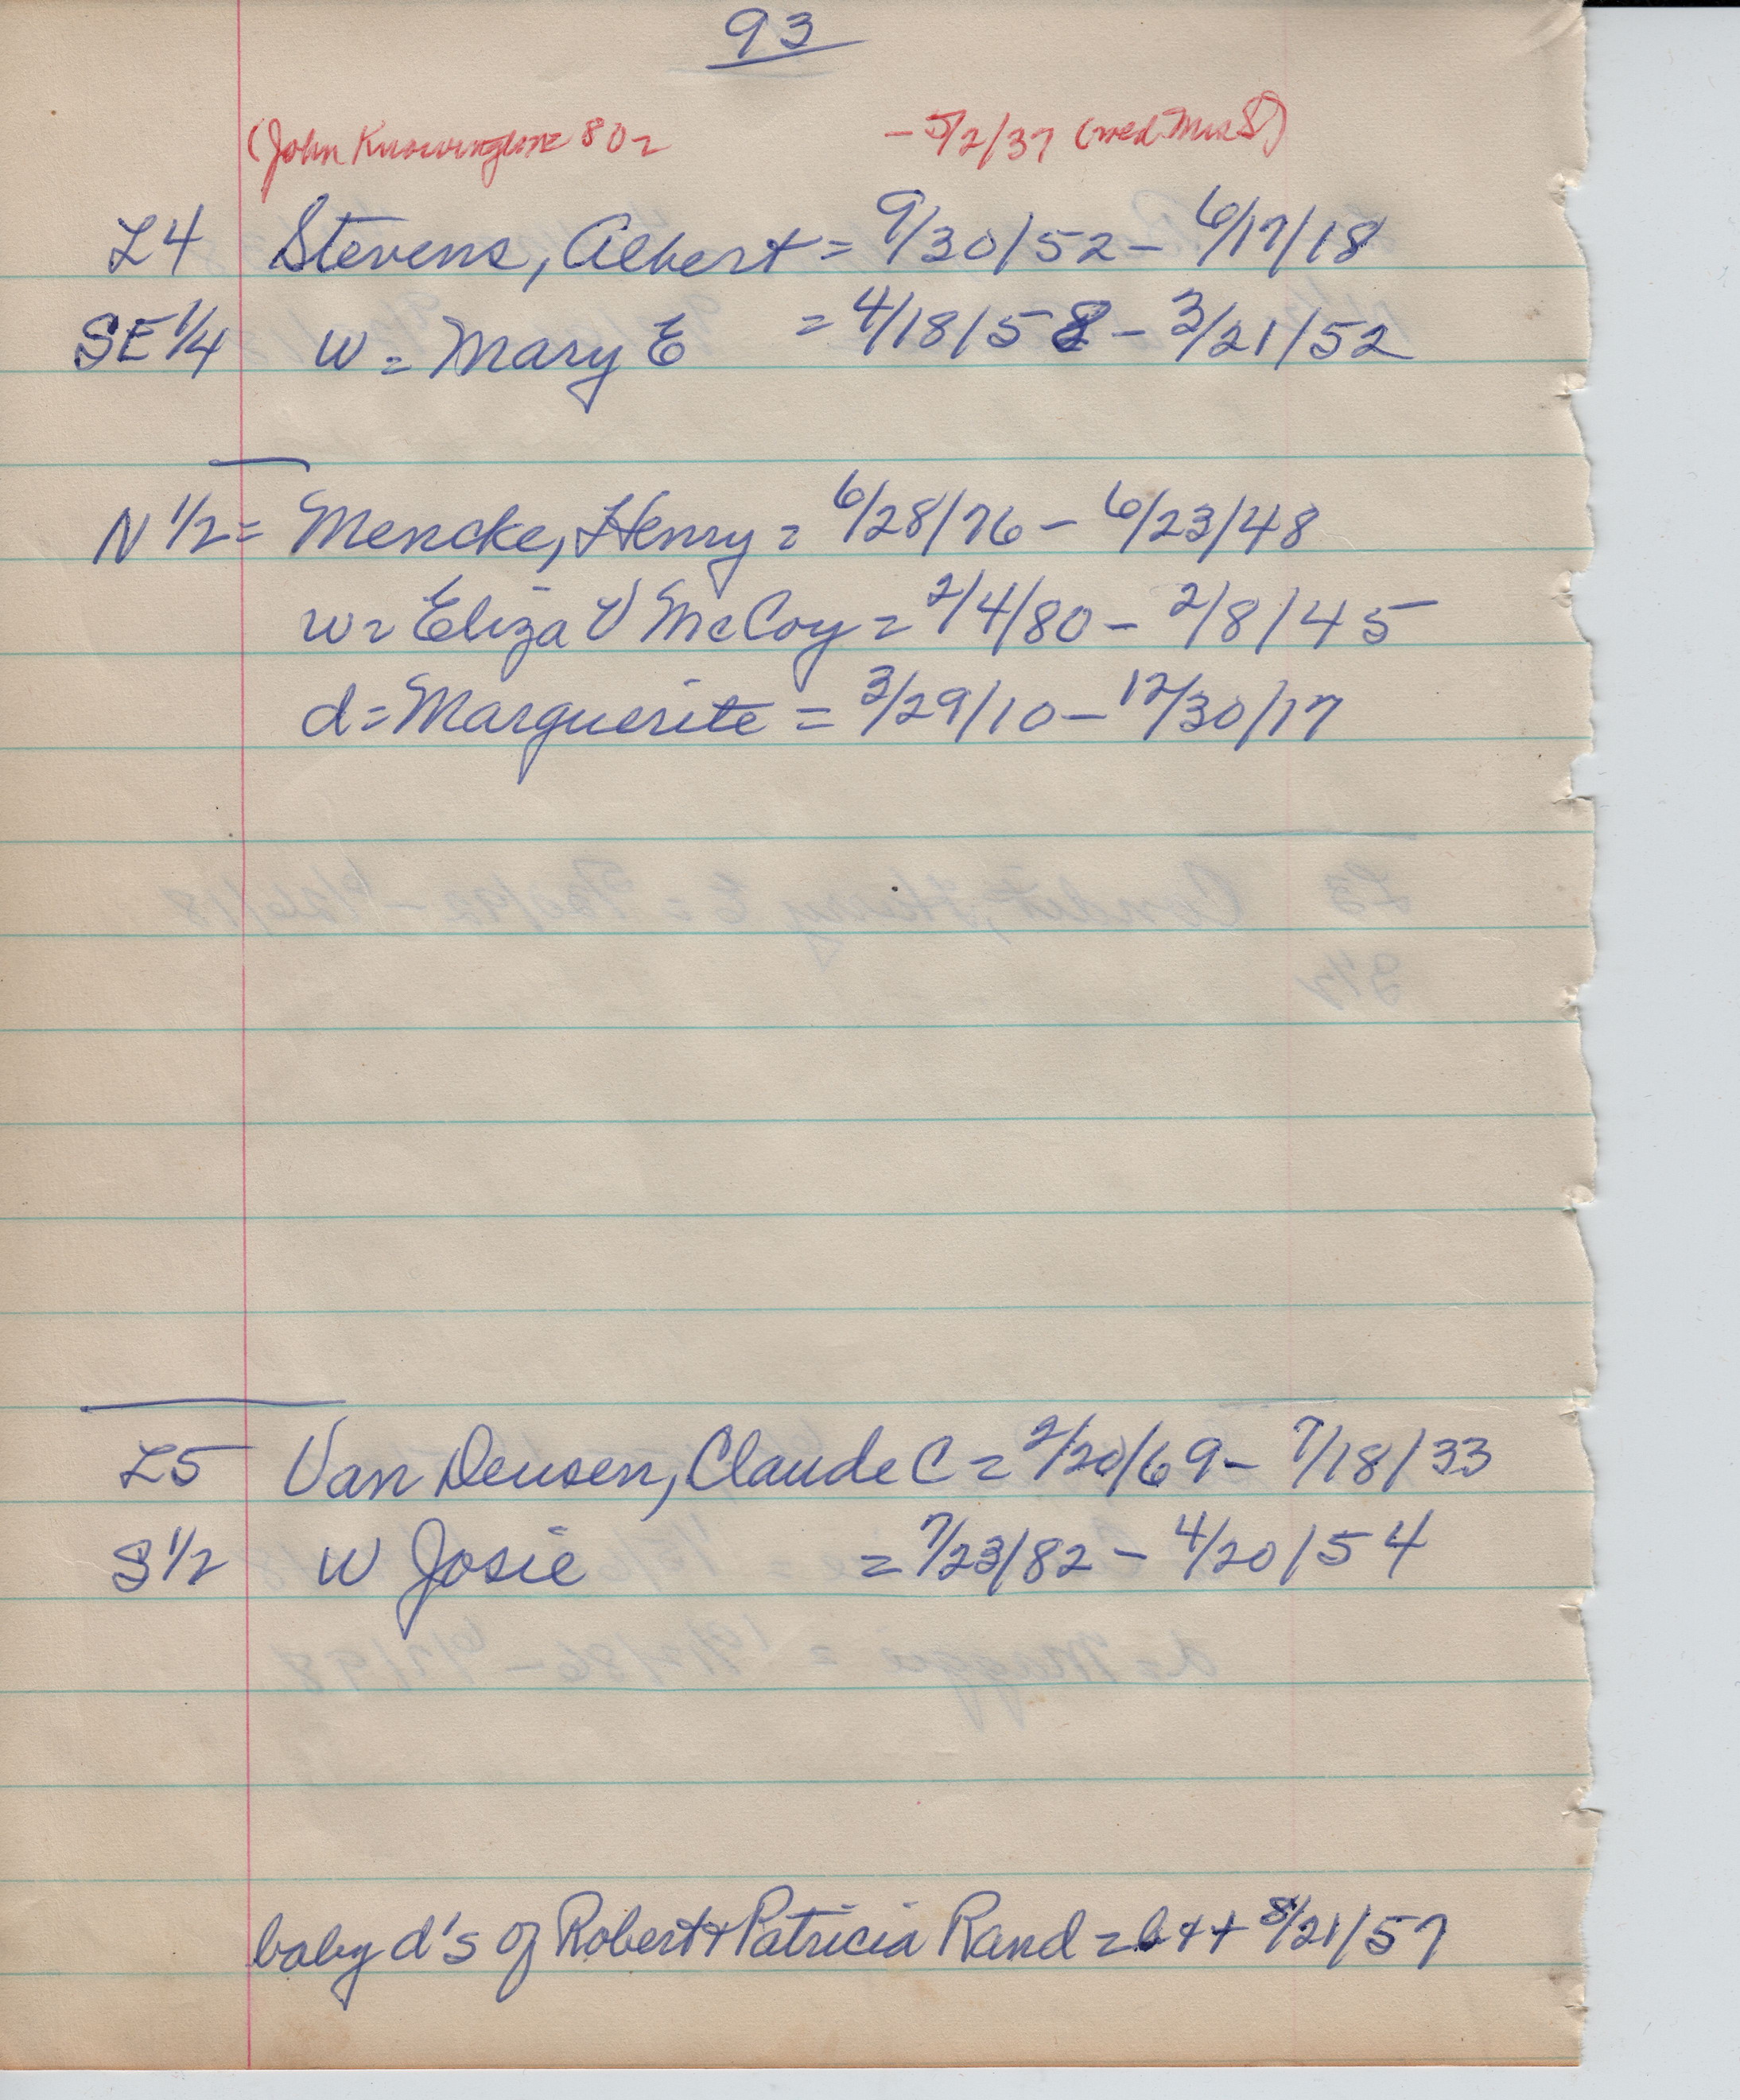 93
(John 80= - 5/2/37 (wed Mrs S)
L4 Stevens, Albert = 9/30/52 - 6/17/18
SE 1/4 w = Mary E = 4/18/58 - 3/21/52
N 1/2 = Mencke, Henry = 6/28/76 - 6/23/48
w = Eliza V McCoy = 2/4/80 - 2/8/45
d = Marguerite = 3/29/10 - 12/30/17
L5 Van Deusen, Claude C = 2/20/69 - 7/18/33
S 1/2 W Josie = 7/23/82 - 4/20/54
baby d's of Robert + Patricia Rand = b + + 8/21/57